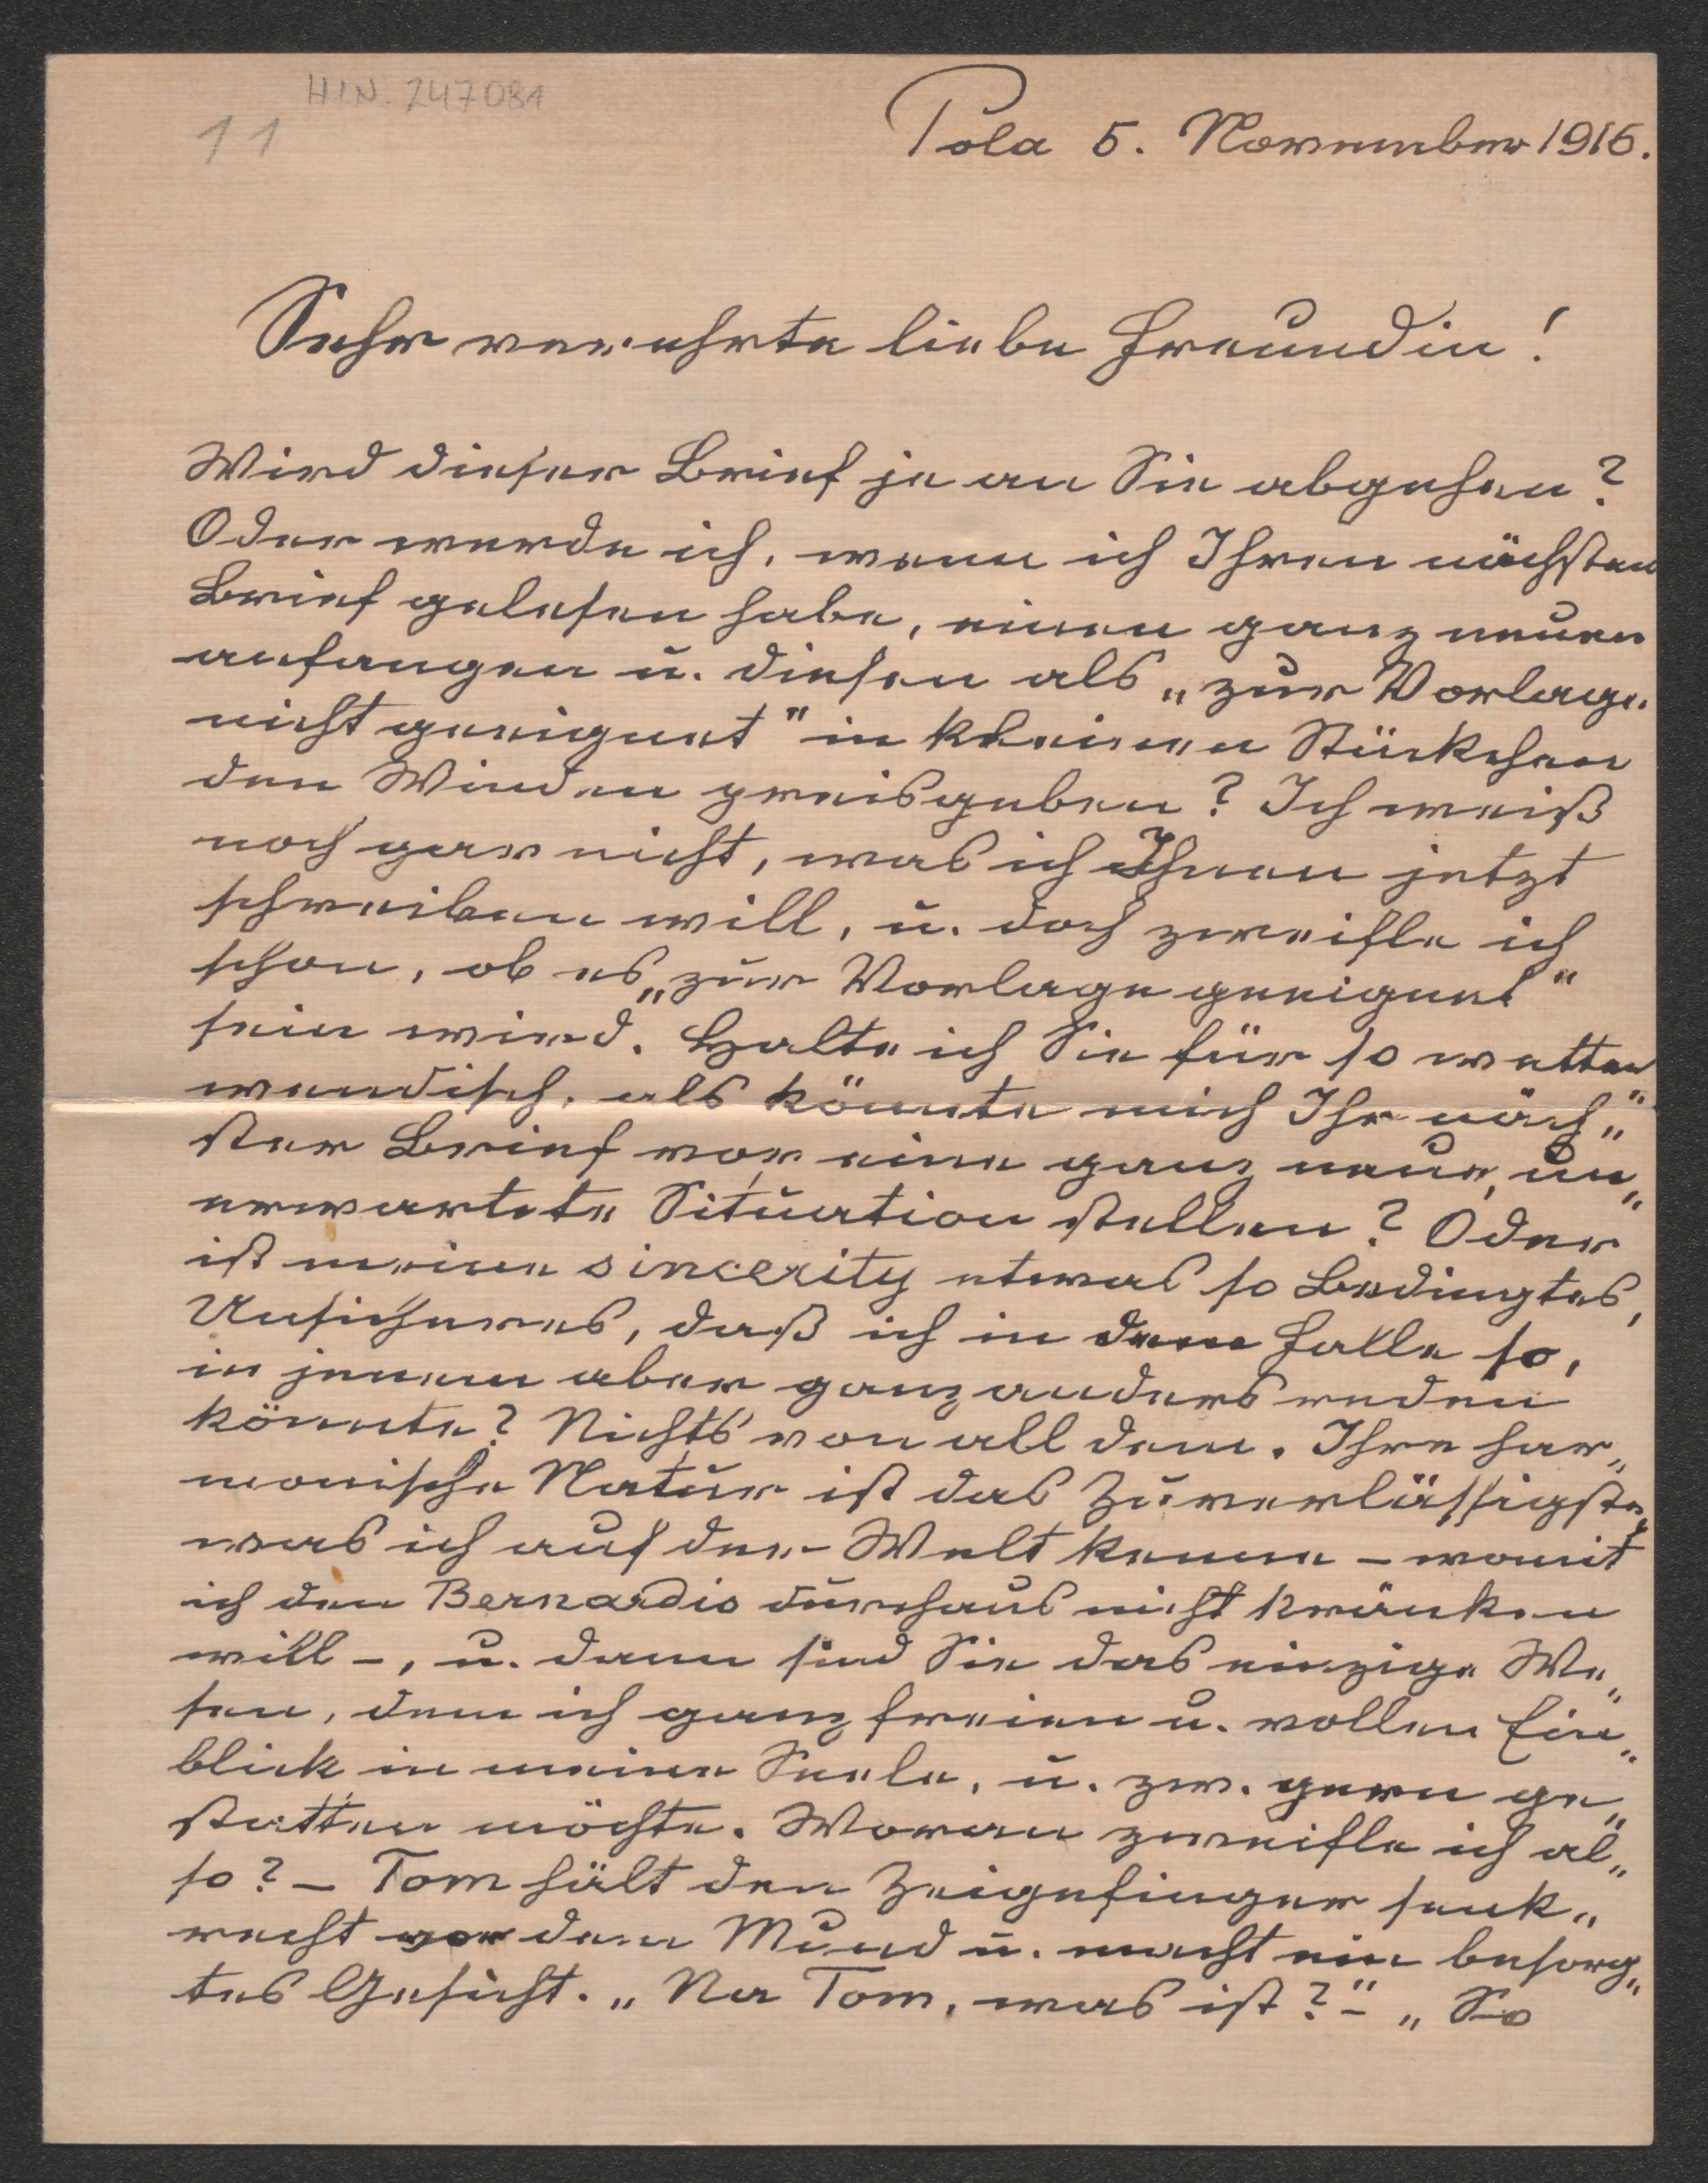 H.I.N. 247081
11
Pola 5. November 1916.
Sehr verehrte liebe Freundin!
Wird dieser Brief je an Sie abgehen?
Oder werde ich, wenn ich Ihren nächsten
Brief gelesen habe, einen ganz neuen
anfangen u. diesen als „zur Vorlage
nicht geeignet" in kleinen Stückchen
den Winden preisgeben? Ich weiß
noch gar nicht, was ich Ihnen jetzt
schreiben will, u. doch zweifle ich
schon, ob es „zur Vorlage geeignet"
sein wird. Halte ich Sie für so wetter„
wendisch, als könnte mich Ihr näch„
ster Brief vor eine ganz neue, un„
erwartete Situation stellen? Oder
ist meine sincerity etwas so Bedingtes,
Unsicheres, daß ich in dem Falle so,
in jenem aber ganz anders reden
könnte? Nichts von all dem. Ihre har„
monische Natur ist das Zuverlässigste,
was ich auf der Welt kenne – womit
ich den Bernardis durchaus nicht kränken
will –, u. dann sind Sie das einzige We„
sen, dem ich ganz freien u. vollen Ein„
blick in meine Seele, u. zw. gern ge„
statten möchte. Woran zweifle ich al„
so? – Tom hält den Zeigefinger senk„
recht vor dem Mund u. macht ein besorg„
tes Gesicht. „Na Tom, was ist?" – „So